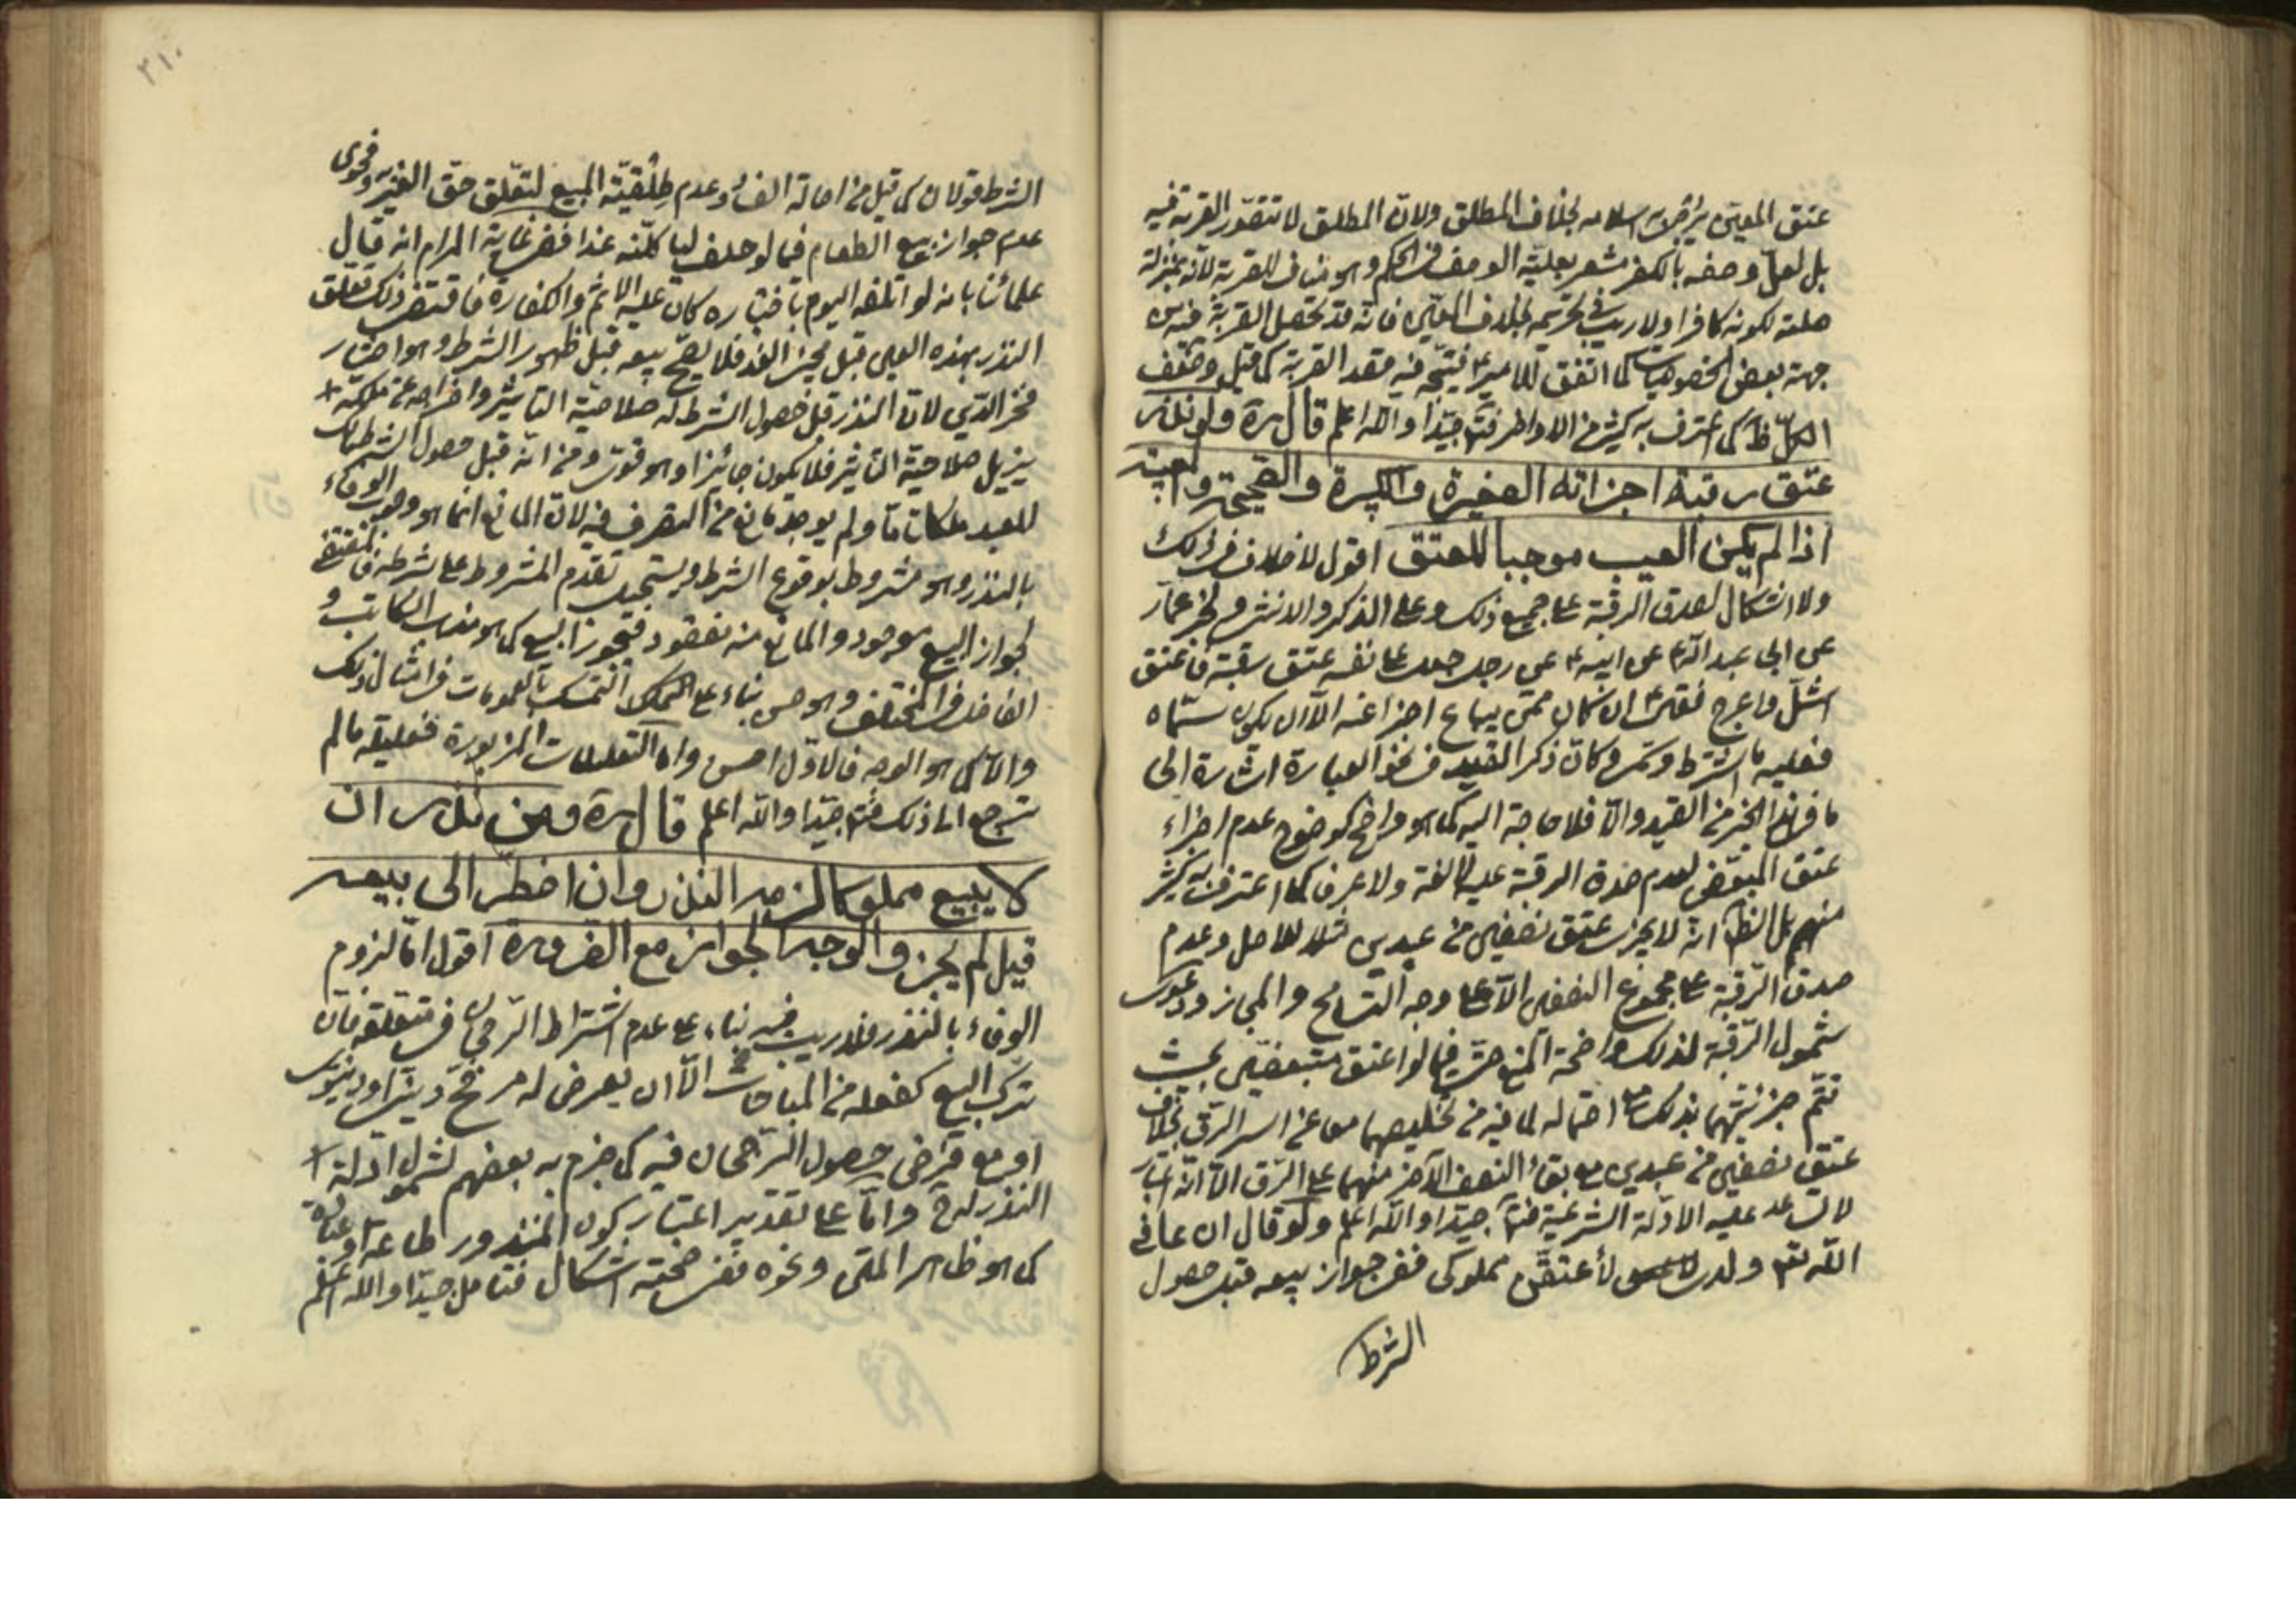 عتق المعين اسلامه بخلاف المطلق ولان المطلق لا تتصور القربة فيه
بل لعل وصفه بالكفر مشعر بعلية الوصف في الحكم وهو مناف للقربة لانه بمنزلة
علته لكونه كافرا ولا ريب في تحريمه بخلاف المعين فانه قد تحصل القربة فيه من
جهة بعض الخصوصيات كما اتفق للامير ع فيتجه فيه قصد القربة كما قيل وضعف
الكل ظ كما اعترف به كثير من الاواخر جيدا والله اعلم قال ره ولو نذر
عتق رقبة اجزاته الصغيرة والكبيرة والصحيحة والمعيبة
اذا لم يكن العيب موجبا للعتق اقول لا خلاف في ذلك
ولا اشكال لصدق الرقبة على جميع ذلك وعلى الذكر والانثى وفي خبر عمار
عن ابي عبد الله ع عن ابيه ع عن رجل جعل على نفسه عتق رقبة فاعتق
اشل واعرج فقال ان كان ممن يباع اجزا عنه الا ان يكون سماه
فعليه ما اشترط وسمى وكان ذكر القيد في نحو العبارة اشارة الى
ما في هذا الخبر من القيد والا فلا حاجة اليه كما هو واضح كوضوح عدم اجزاء
عتق المبعض لعدم صدق الرقبة عليه لا لغة ولا عرفا كما اعترف به كثير
منهم بل الظ انه لا يجزى عتق نصفين من عبدين مثلا للاصل وعدم
صدق الرقبة على مجموع النصفين الا على وجه التسامح والمجاز ودعوى
شمول الرقبة لذلك واضحة المنع حتى فيما لو اعتق متبعضين بحيث
تتم حريتهما بذلك احتماله لما فيه من تخليصهما معا عن اسر الرق بخلاف
عتق نصفين من عبدين مع بقاء النصف الآخر منهما على الرق الا انه اعتبار
لا تساعد عليه الادلة الشرعية جيدا والله اعلم ولو قال ان عافى
الله تع ولدى لأعتقن مملوكى ففى جواز بيعه قبل حصول
الشرط
٢١٠
الشرط قولان كما قيل من اصالة وعدم طلقية المبيع لتعلق حق الغير به وفحوى
عدم جواز بيع الطعام فيما لو حلف لياكلنه غدا ففى غاية المرام انه قال
علمائنا بانه لو اتلفه اليوم باختياره كان عليه الاثم والكفارة فاقتضى ذلك تعلق
النذر بهذه العين قبل مجئ الغد فلا يصح بيعه قبل ظهور الشرط وهو اختيار
فخر الدين لان النذر قبل حصول الشرط له صلاحية التاثير واخراجه عن ملكه
يزيل صلاحية التاثير فلا يكون جائزا وهو قوى ومن انه قبل حصول الشرط مالك
للعبد ملكا تاما ولم يوجد مانع من التصرف فيه لان المانع انما هو وجوب الوفاء
بالنذر وهو مشروط بوقوع الشرط ويستحيل تقدم المشروط على شرطه فالمقتضى
لجواز البيع موجود والمانع منه مفقود فيجوز البيع كما هو مذهب الكاتب و
الفاضل في المختلف وهو حسن بناء على التمسك بالعمومات في امثال ذلك
والا كما هو الوجه فالاول احسن واما التعليلات المزبورة فعليلة ما لم
ترجع الى ذلك جيدا والله اعلم قال ره ومن نذر ان
لا يبيع مملوكا لزمه النذر وان اضطر الى بيعه
قيل لم يجز والوجه الجواز مع الضرورة اقول اما لزوم
الوفاء بالنذر فلا ريب فيه بناء على عدم اشتراط الرجحان في متعلقه فان
ترك البيع كفعله من المباحات الا ان يعرض له مرجح دينى او دنيوى
او مع فرض حصول الرجحان فيه كما جزم به بعضهم لشمول ادلة
النذر له ح واما على تقدير اعتبار كون المنذور طاعة او عبادة
كما هو ظاهر المتن ونحوه ففى صحته اشكال فتامل جيدا والله اعلم